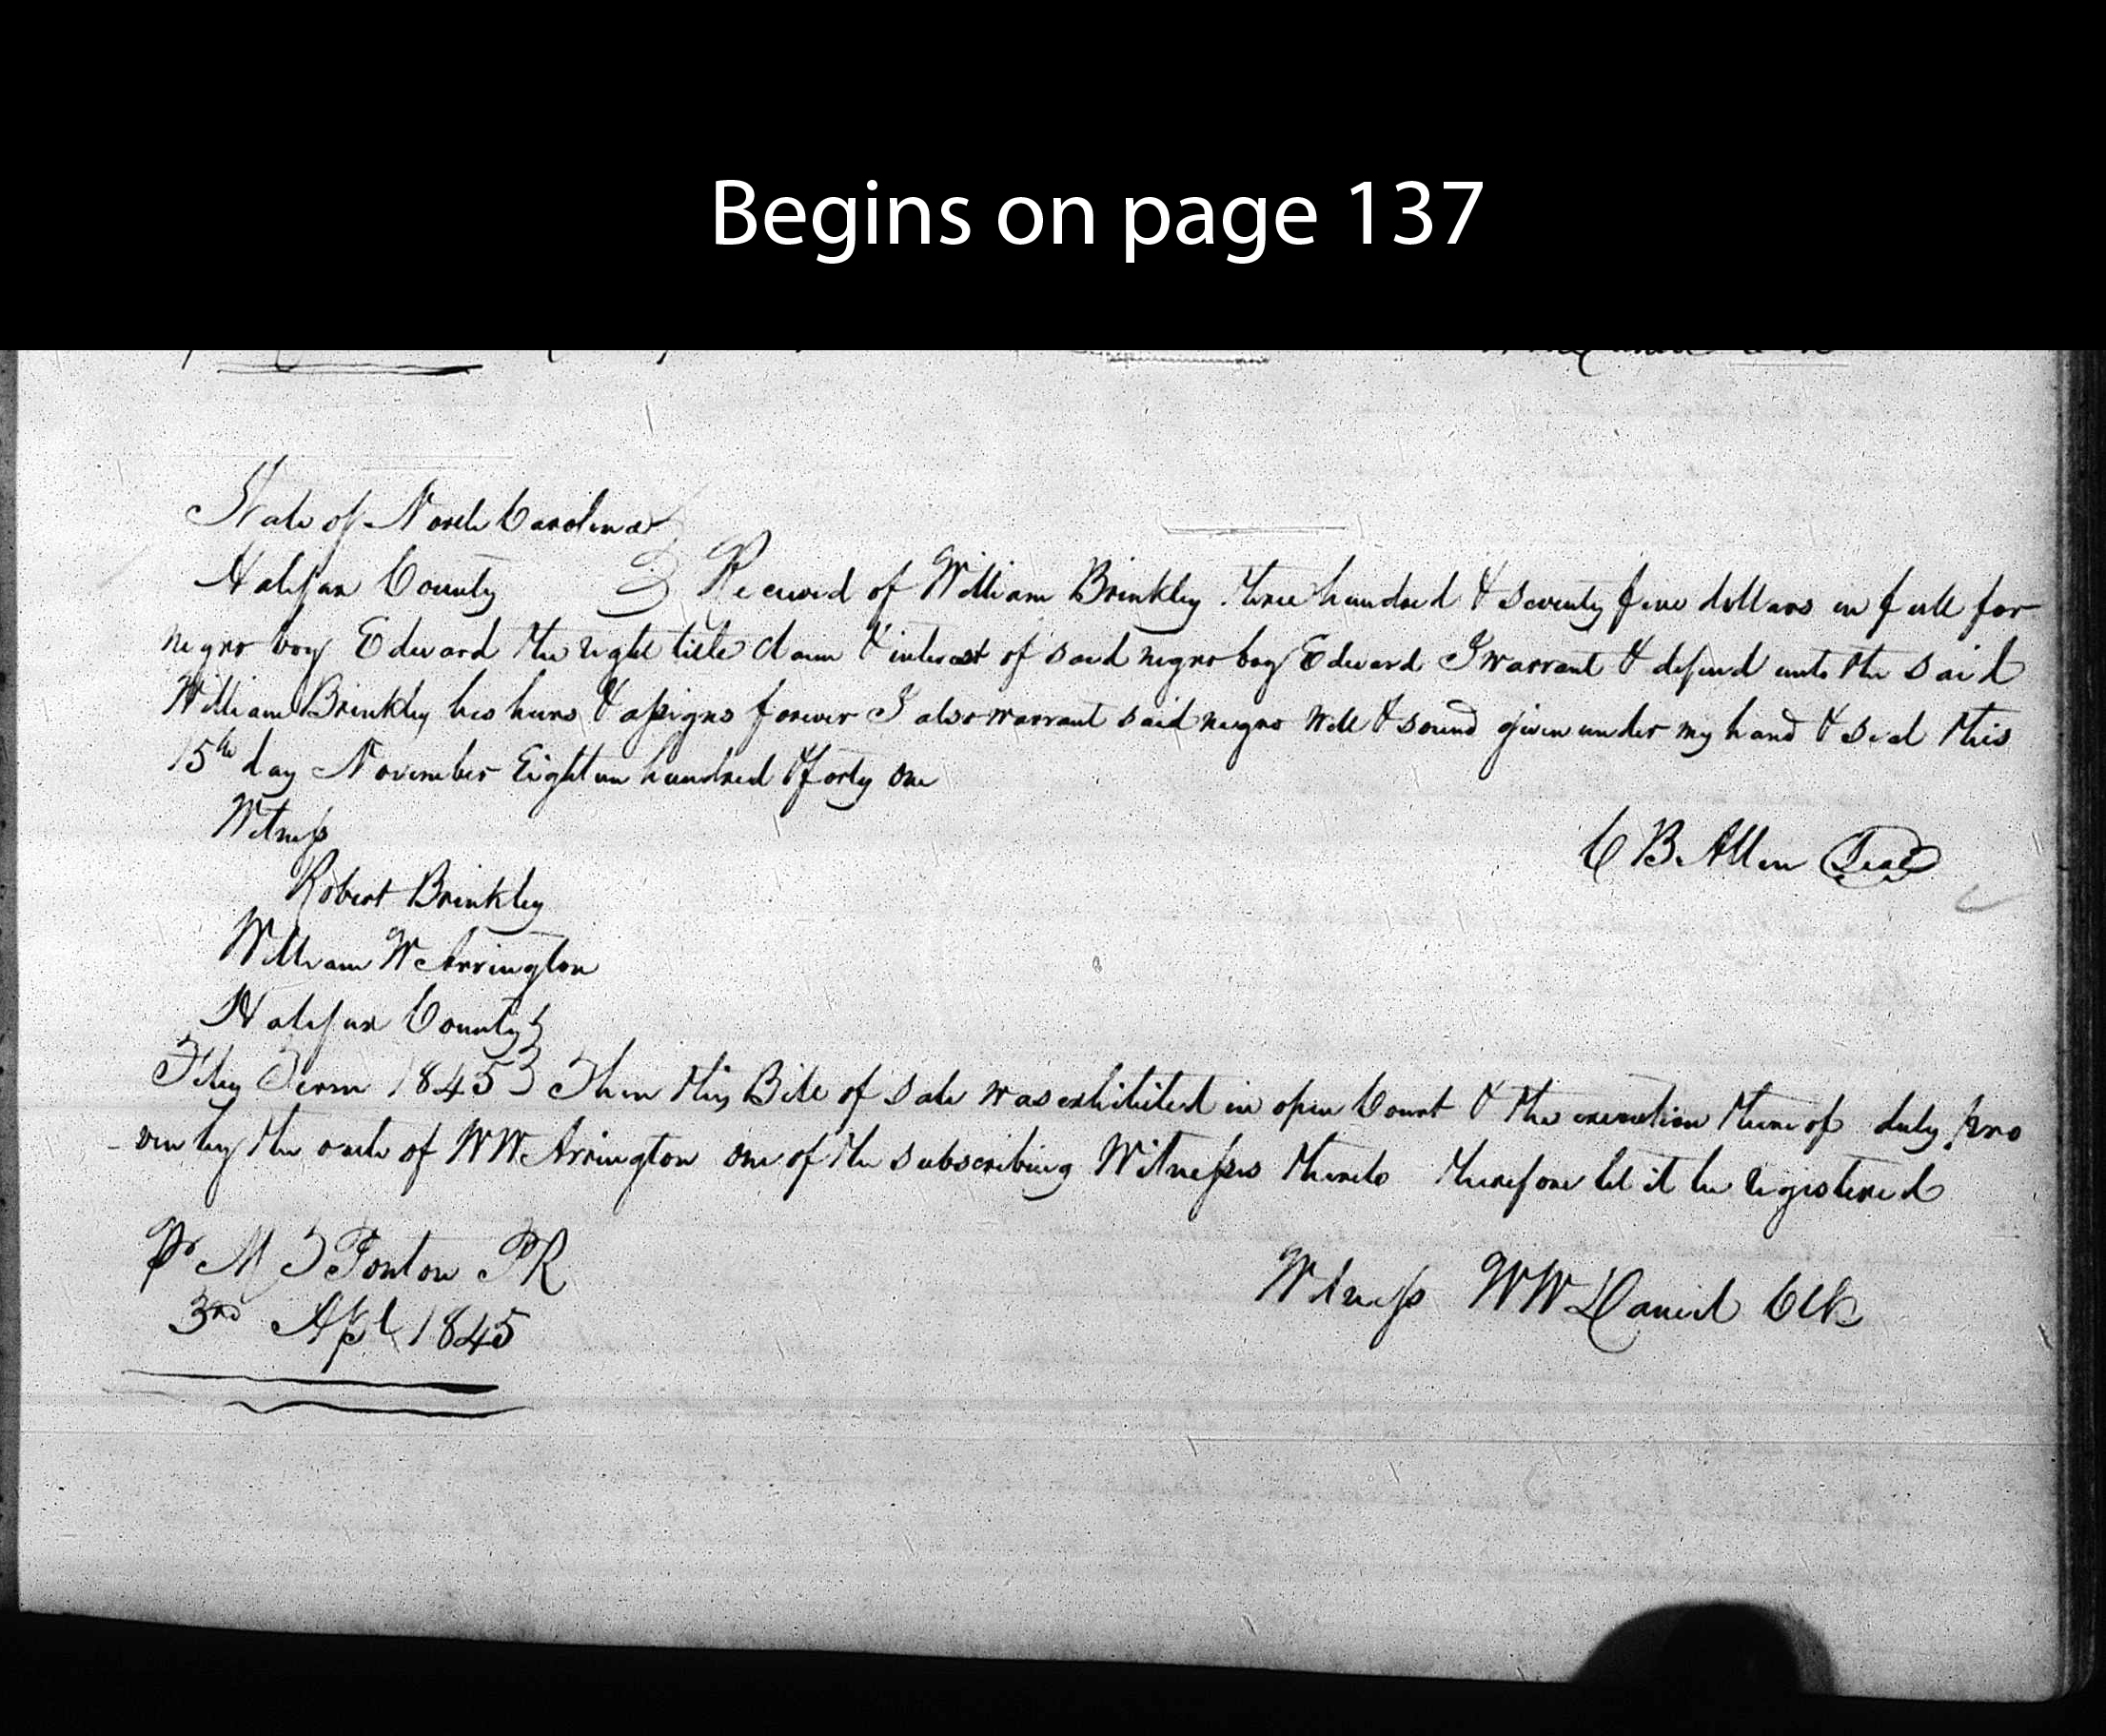 Begins on page 137
State of North Carolina
Halifax County } Received of William Brinkley three hundred & seventy five dollars in full for
negro boy Edward the right title claim & interest of said negro boy Edward I warrant & defend unto the said
William Brinkley his heirs & assigns forever I also warrant said negro well & sound given under my hand & seal this
15th day November Eighteen hundred & forty one
Witness
C B Allen Seal
Robert Brinkley
William W Arrington
Halifax County }
Feby Term 1845 } Then this Bill of sale was exhibited in open Court & the execution thereof duly pro
-ven by the oath of W W Arrington one of the subscribing Witnesses thereto therefore let it be registered
Witness W W Daniel Clk
Pr M T Ponton PR
3rd Apl 1845